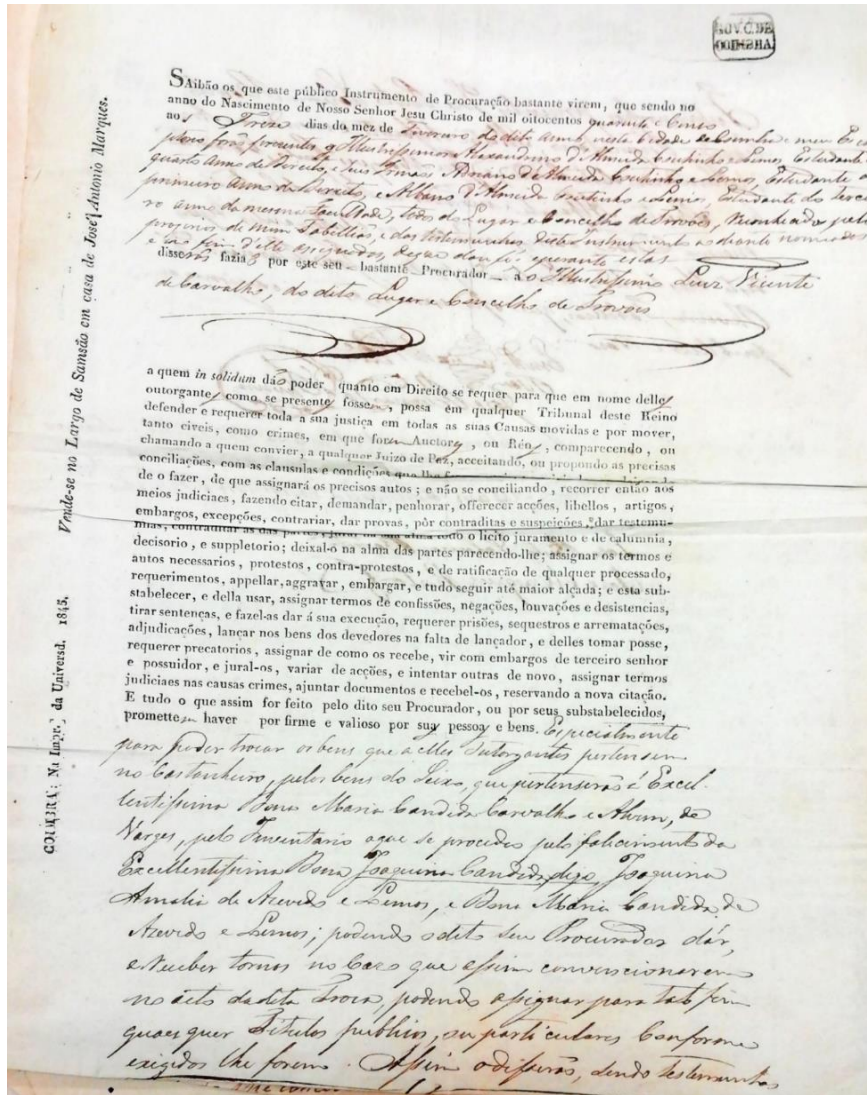 GOV. C. DE
COIMBRA
SAibão os que este público Instrumento de Procuração bastante virem, que sendo no
anno do Nascimento de Nosso Senhor Jesu Christo de mil oitocentos quarenta e cinco
aos Treze dias do mez de Fevereiro do dito anno, nesta Cidade de Coimbra e meu
forão presentes os Illustrissimos Alexandrino d'Almeida Coutinho e Lemos, Estudante
quarto anno de Direito, e seus Irmãos Adriano de Almeida Coutinho e Lemos, Estudante
primeiro anno de Direito, e Albano d'Almeida Coutinho e Lemos, Estudante do tercei
ro anno da mesma Faculdade, todos do Lugar e Concelho de Trovões,
proprios de mim Tabellião, e das testemunhas deste Instrumento ao diante nomeadas
e no fim d'elle assignadas, de que dou fé; e perante estas
disserão fazião por este seu bastante Procurador ao Illustrissimo Luiz Vicente
de Carvalho, do dito Lugar e Concelho de Trovões
a quem in solidum dão poder quanto em Direito se requer para que em nome delles
outorgantes como se presentes fossem, possa em qualquer Tribunal deste Reino
defender e requerer toda a sua justiça em todas as suas Causas movidas e por mover,
tanto civeis, como crimes, em que forem Auctores, ou Réos, comparecendo, ou
chamando a quem convier, a qualquer Juizo de Paz, acceitando, ou propondo as precisas
conciliações, com as clausulas e condições que lhe
de o fazer, de que assignará os precisos autos; e não se conciliando, recorrer então aos
meios judiciaes, fazendo citar, demandar, penhorar, offerecer acções, libellos, artigos,
embargos, excepções, contrariar, dar provas, pôr contraditas e suspeições, dar testemu-
nhas, contraditar as das partes, jurar na sua alma todo o licito juramento e de calumnia,
decisorio, e suppletorio; deixal-o na alma das partes parecendo-lhe; assignar os termos e
autos necessarios, protestos, contra-protestos, e de ratificação de qualquer processado,
requerimentos, appellar, aggravar, embargar, e tudo seguir até maior alçada; e esta sub-
stabelecer, e della usar, assignar termos de confissões, negações, louvações e desistencias,
tirar sentenças, e fazel-as dar á sua execução, requerer prisões, sequestros e arrematações,
adjudicações, lançar nos bens dos devedores na falta de lançador, e delles tomar posse,
requerer precatorios, assignar de como os recebe, vir com embargos de terceiro senhor
e possuidor, e jural-os, variar de acções, e intentar outras de novo, assignar termos
judiciaes nas causas crimes, ajuntar documentos e recebel-os, reservando a nova citação.
E tudo o que assim for feito pelo dito seu Procurador, ou por seus substabelecidos,
promettem haver por firme e valioso por suas pessoas e bens. Especialmente
para poder trocar os bens que a elles Outorgantes pertencem
no Castanheiro, pelos bens do Seixo, que pertencerão á Excel-
lentissima Dona Maria Candida Carvalho e Alvim, de
Varges, pelo Inventario a que se procedeo pelo falicimento da
Excellentissima Dona Joaquina Candida, digo, Joaquina
Amalia de Azevedo e Lemos, e Dona Maria Candida de
Azevedo e Lemos; podendo o dito seu Procurador dár,
e receber tornas no Caso que assim convencionarem
no acto da dita Troca, podendo assignar para tal fim
quaes quer Titulos publicos, ou particulares Conforme
exigidos lhe forem. Assim o disserão, sendo testemunhas
COIMBRA: Na Impr. da Universd. 1845. Vende-se no Largo de Samsão em casa de José Antonio Marques.